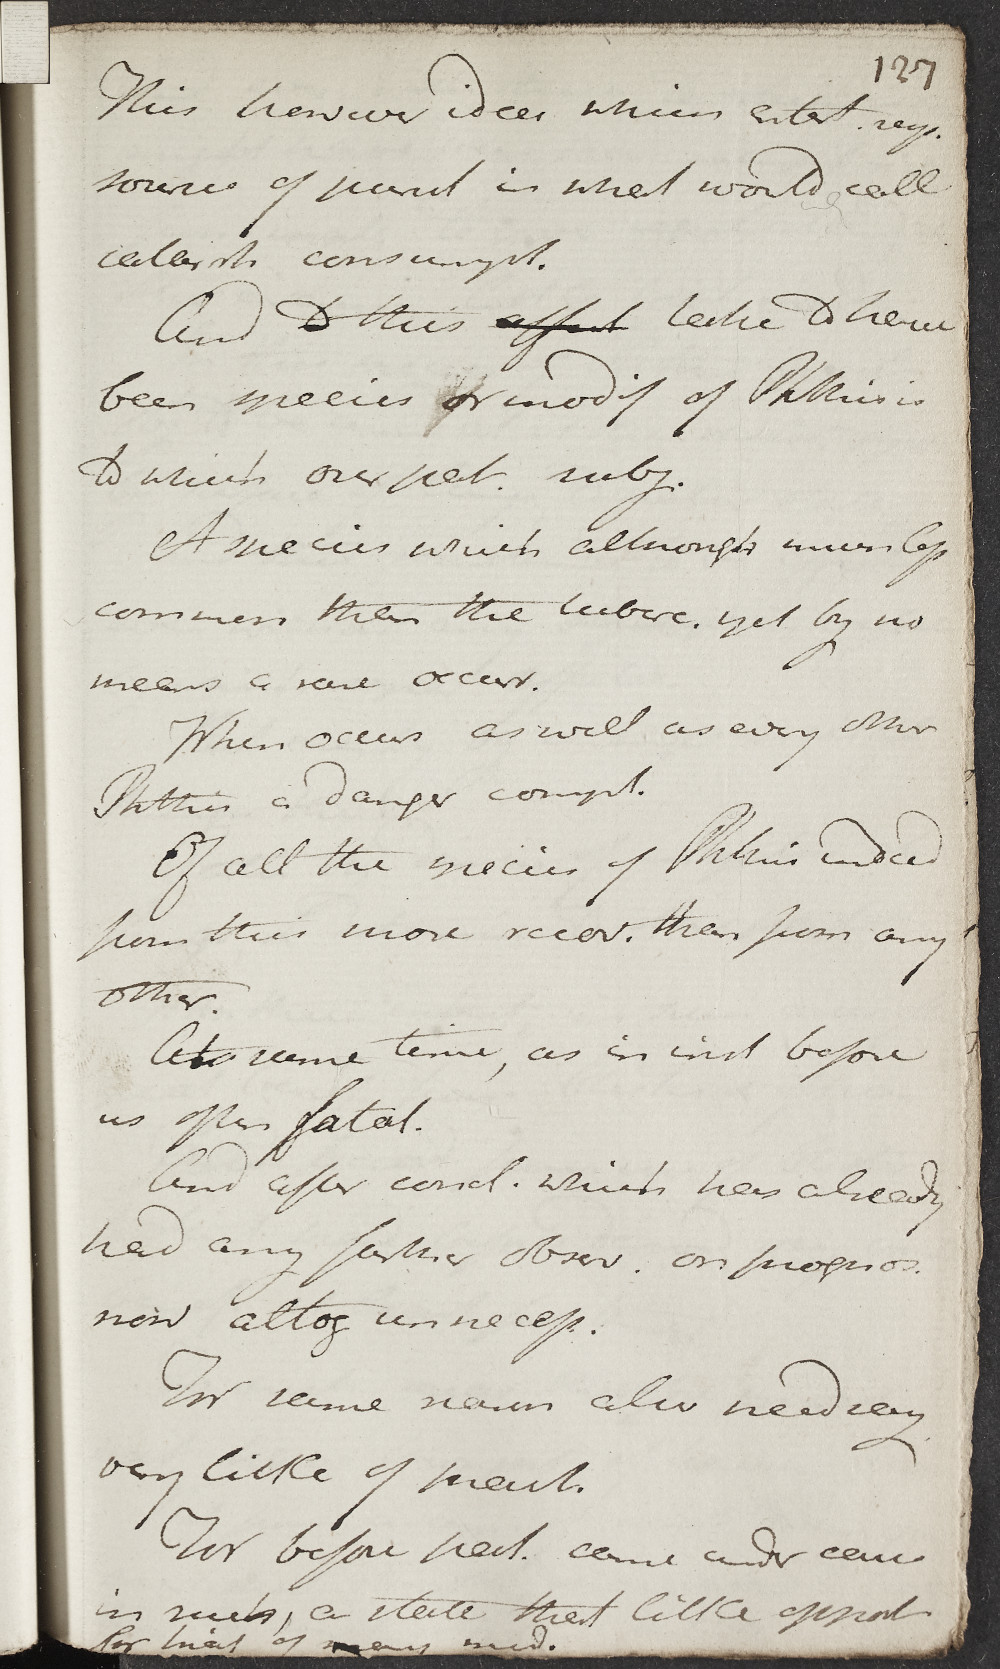 127
This however idea which entert. reg.
source of purul is what would call
catarrh consumpt.
And to this affect take to have
been species or modif of Phthisis
to which our pat. subj.
A species which although much less
common than the tuberc. yet by no
means a rare occurr.
When occurs as well as every other
Phthisis a danger compl.
Of all the species of Phthisis indeed
from this more recov. than from any
other.
At same time, as in inst before
us often fatal.
And after concl. which has already
had any farther observ. on prognos.
now altog unnecess.
For same reason also need say
very little of pract.
For before pat. came under care
in such, a state that little opport
for trial of many med.